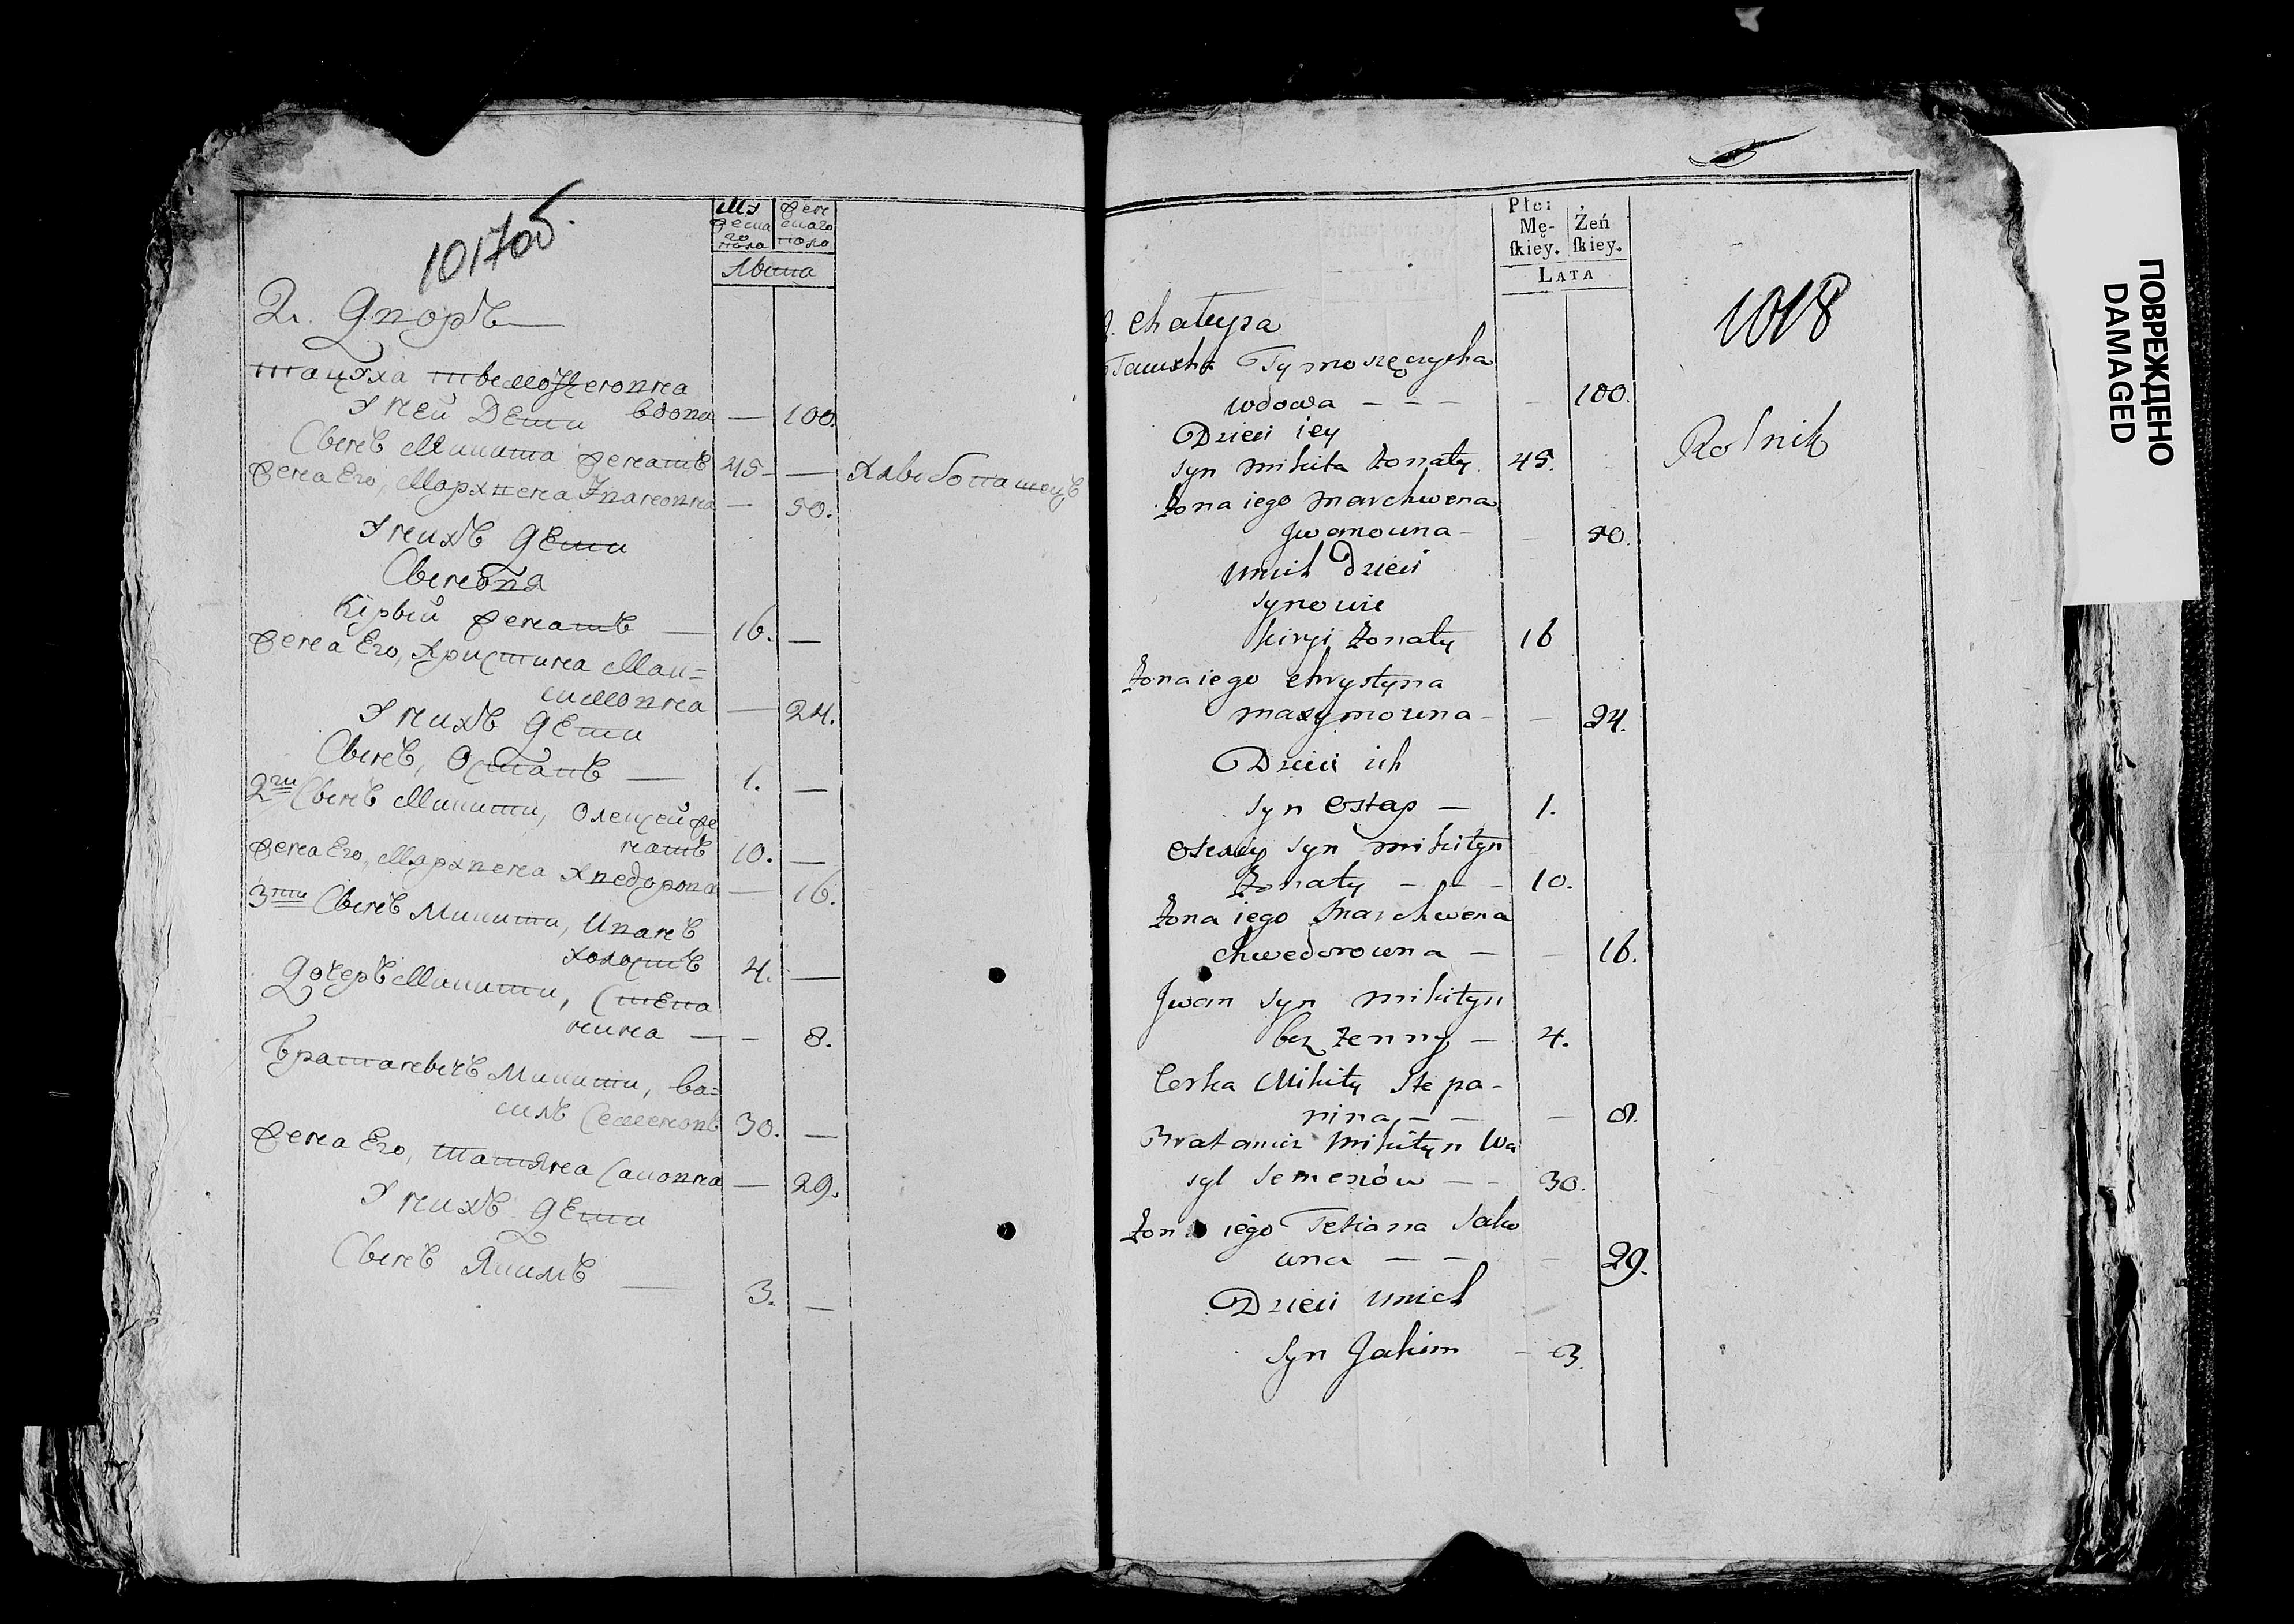 1017об.
Му
жеска
го
пола
Жен
скаго
пола
Лѣта
2. Дворъ
Тацюха Тымошеговна
У ней Дети вдова — 100.
Сынъ Микита женатъ 45 —
Хлѣбопашецъ
Жена Его, Мархвена Іванеовна — 50.
У нихъ Дети
Сыновя
Кірый женатъ — 16. —
Жена Его, Христина Мак=
симовна — 24.
У нихъ Дети
Сынъ, Остапъ — 1. —
2ги Сынъ Микити, Олексей же
натъ 10. —
Жена Его, Мархвена Хведорова — 16.
3ти Сынъ Микити, Иванъ
холостъ 4. —
Дочеръ Микити, Степа
нина — — 8.
Братаневичъ Микити, Ва=
силъ Семеновъ 30. —
Жена Его, Татяна Саковна — 29.
У нихъ Дети
Сынъ Якимъ — 3. —
Płci
Mę-
skiey.
Żeń
skiey.
LATA
1018
2. Chatupa
Tymoszęczycha
wdowa – – – – 100.
Dzieci iey
syn Mikita żonaty 45.
Rolnik
żona iego Marchwena
Jwanowna – – 50.
unich Dzieci
synowie
kiryi żonaty 16
żona iego Chrystyna
Maxymowna – – 24.
Dzieci ich
syn Ostap — 1.
Olexiy syn Mikityn
żonaty – – – 10.
żona iego Marchwena
Chwedorowna — – 16.
Jwan syn Mikityn
bez żenny — 4.
Corka Mikity Stepa-
nina – – – 8.
Bratanicz Mikityn Wa
syl Semenów – – 30.
żona iego Tetiana Sako
wna – – – 29.
Dzieci unich
syn Jakim – 3.
ПОВРЕЖДЕНО
DAMAGED